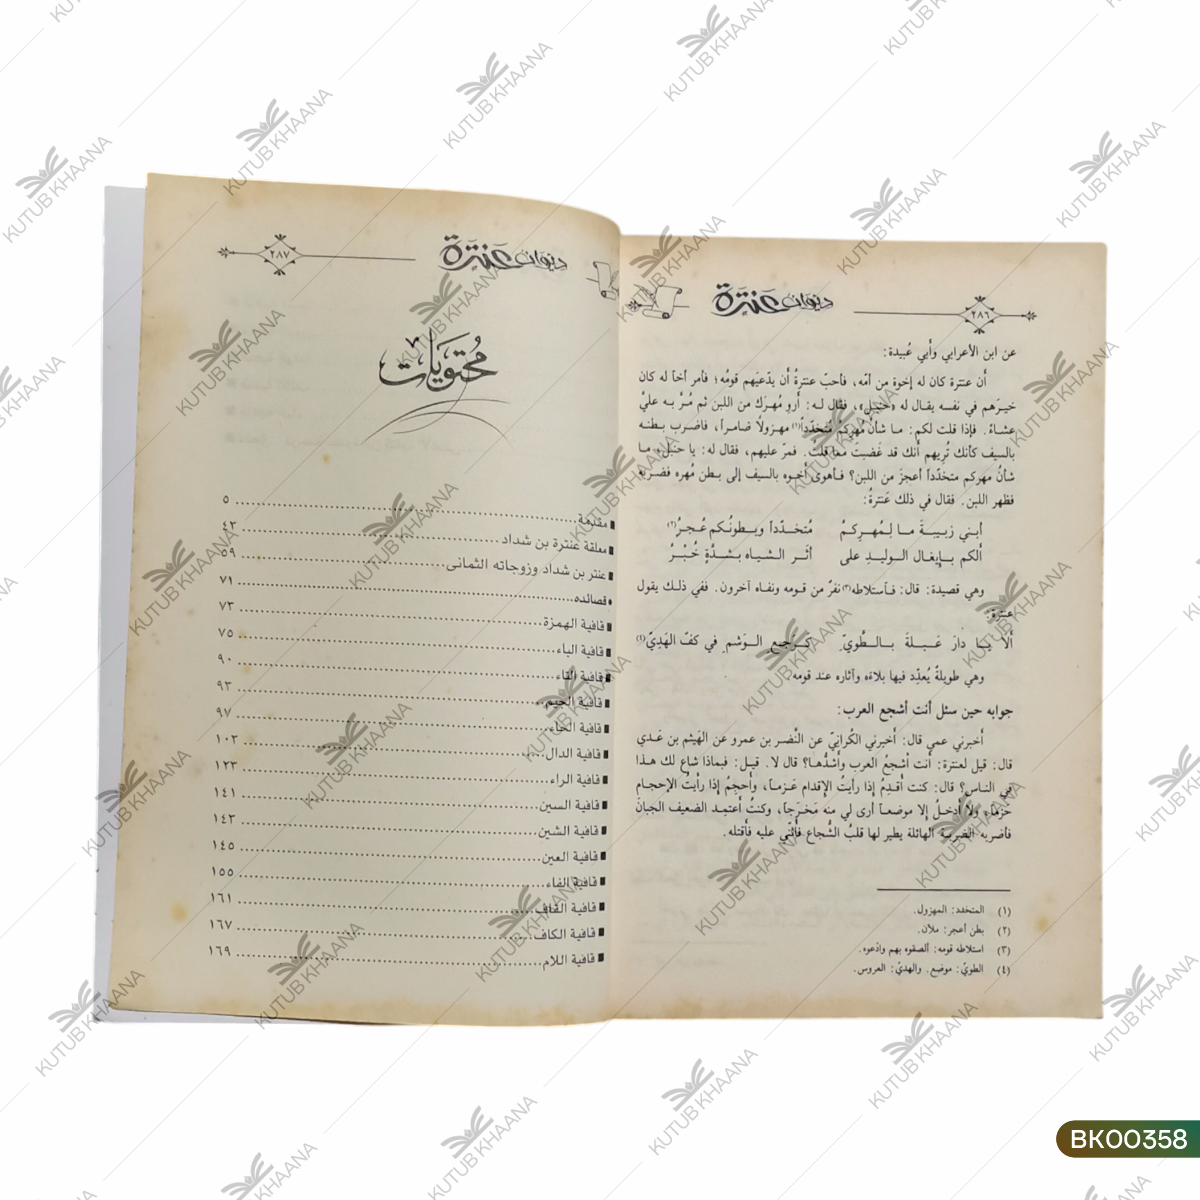 ديوان عنترة
٢٨٦
عن ابن الأعرابي وأبي عُبيدة:
أن عنترة كان له إخوة من أمّه، فأحبّ عنترةُ أن يدّعيَهم قومُه؛ فأمر أخاً له كان
خيرَهم في نفسه يقال له «حَنبَل»، فقال له: أروِ مُهرَك من اللبن ثم مُرَّ به عليَّ
عشاءً. فإذا قلت لكم: ما شأنُ مُهركمُ مُتخدّداً(١) مهزولًا ضامراً، فاضرب بطنه
بالسيف كأنك تُريهم أنك قد غضبتَ مما قلتُ. فمرّ عليهم، فقال له: يا حنبل، ما
شأنُ مهركم متخدّداً أعجزَ من اللبن؟ فأهوى أخوه بالسيف إلى بطن مُهره فضربه
فظهر اللبن. فقال في ذلك عَنترةُ:
أبني زبيبةَ ما لِمُهركِمُ مُتخدّداً وبطونُكم عُجرُ(٢)
ألكم بإيغال الوليدِ على أثَر الشياه بشدّةٍ خُبْرُ
وهي قصيدة: قال: فاستلاطه(٣) نفرٌ من قومه ونفاه آخرون. ففي ذلك يقول
عنترة:
ألا يا دارَ عَبلةَ بالطَّويِّ كرَجعِ الوَشم في كفّ الهَدِيّ(٤)
وهي طويلةٌ يُعدِّد فيها بلاءَه وآثاره عند قومه.
جوابه حين سئل أنت أشجع العرب:
أخبرني عمي قال: أخبرني الكُرانِيّ عن النَّضر بن عمرو عن الهَيثم بن عَدي
قال: قيل لعنترة: أنت أشجعُ العرب وأشدُّها؟ قال لا. قيل: فبماذا شاع لك هذا
في الناس؟ قال: كنت أُقدِمُ إذا رأيتُ الإقدام عَزماً، وأُحجِمُ إذا رأيتُ الإحجام
حَزماً، ولا أدخلُ إلا موضعاً أرى لي منه مَخرَجاً، وكنتُ أعتمِد الضعيف الجبانَ
فأضربه الضربة الهائلة يطير لها قلبُ الشُّجاع فأثني عليه فأقتله.
(١) المتخدد: المهزول.
(٢) بطن أعجر: ملآن.
(٣) استلاطه قومه: ألصقوه بهم وادّعوه.
(٤) الطويّ: موضع. والهديّ: العروس.
ديوان عنترة
٢٨٧
مُحتويات
مقدمة ٥
معلقة عنترة بن شداد ٤٣
عنتر بن شداد وزوجاته الثماني ٥٩
قصائده ٧١
قافية الهمزة ٧٣
قافية الباء ٧٥
قافية التاء ٩٠
قافية الجيم ٩٣
قافية الحاء ٩٧
قافية الدال ١٠٣
قافية الراء ١٢٣
قافية السين ١٤١
قافية الشين ١٤٣
قافية العين ١٤٥
قافية الفاء ١٥٥
قافية القاف ١٦١
قافية الكاف ١٦٧
قافية اللام ١٦٩
KUTUB KHAANA
BK00358